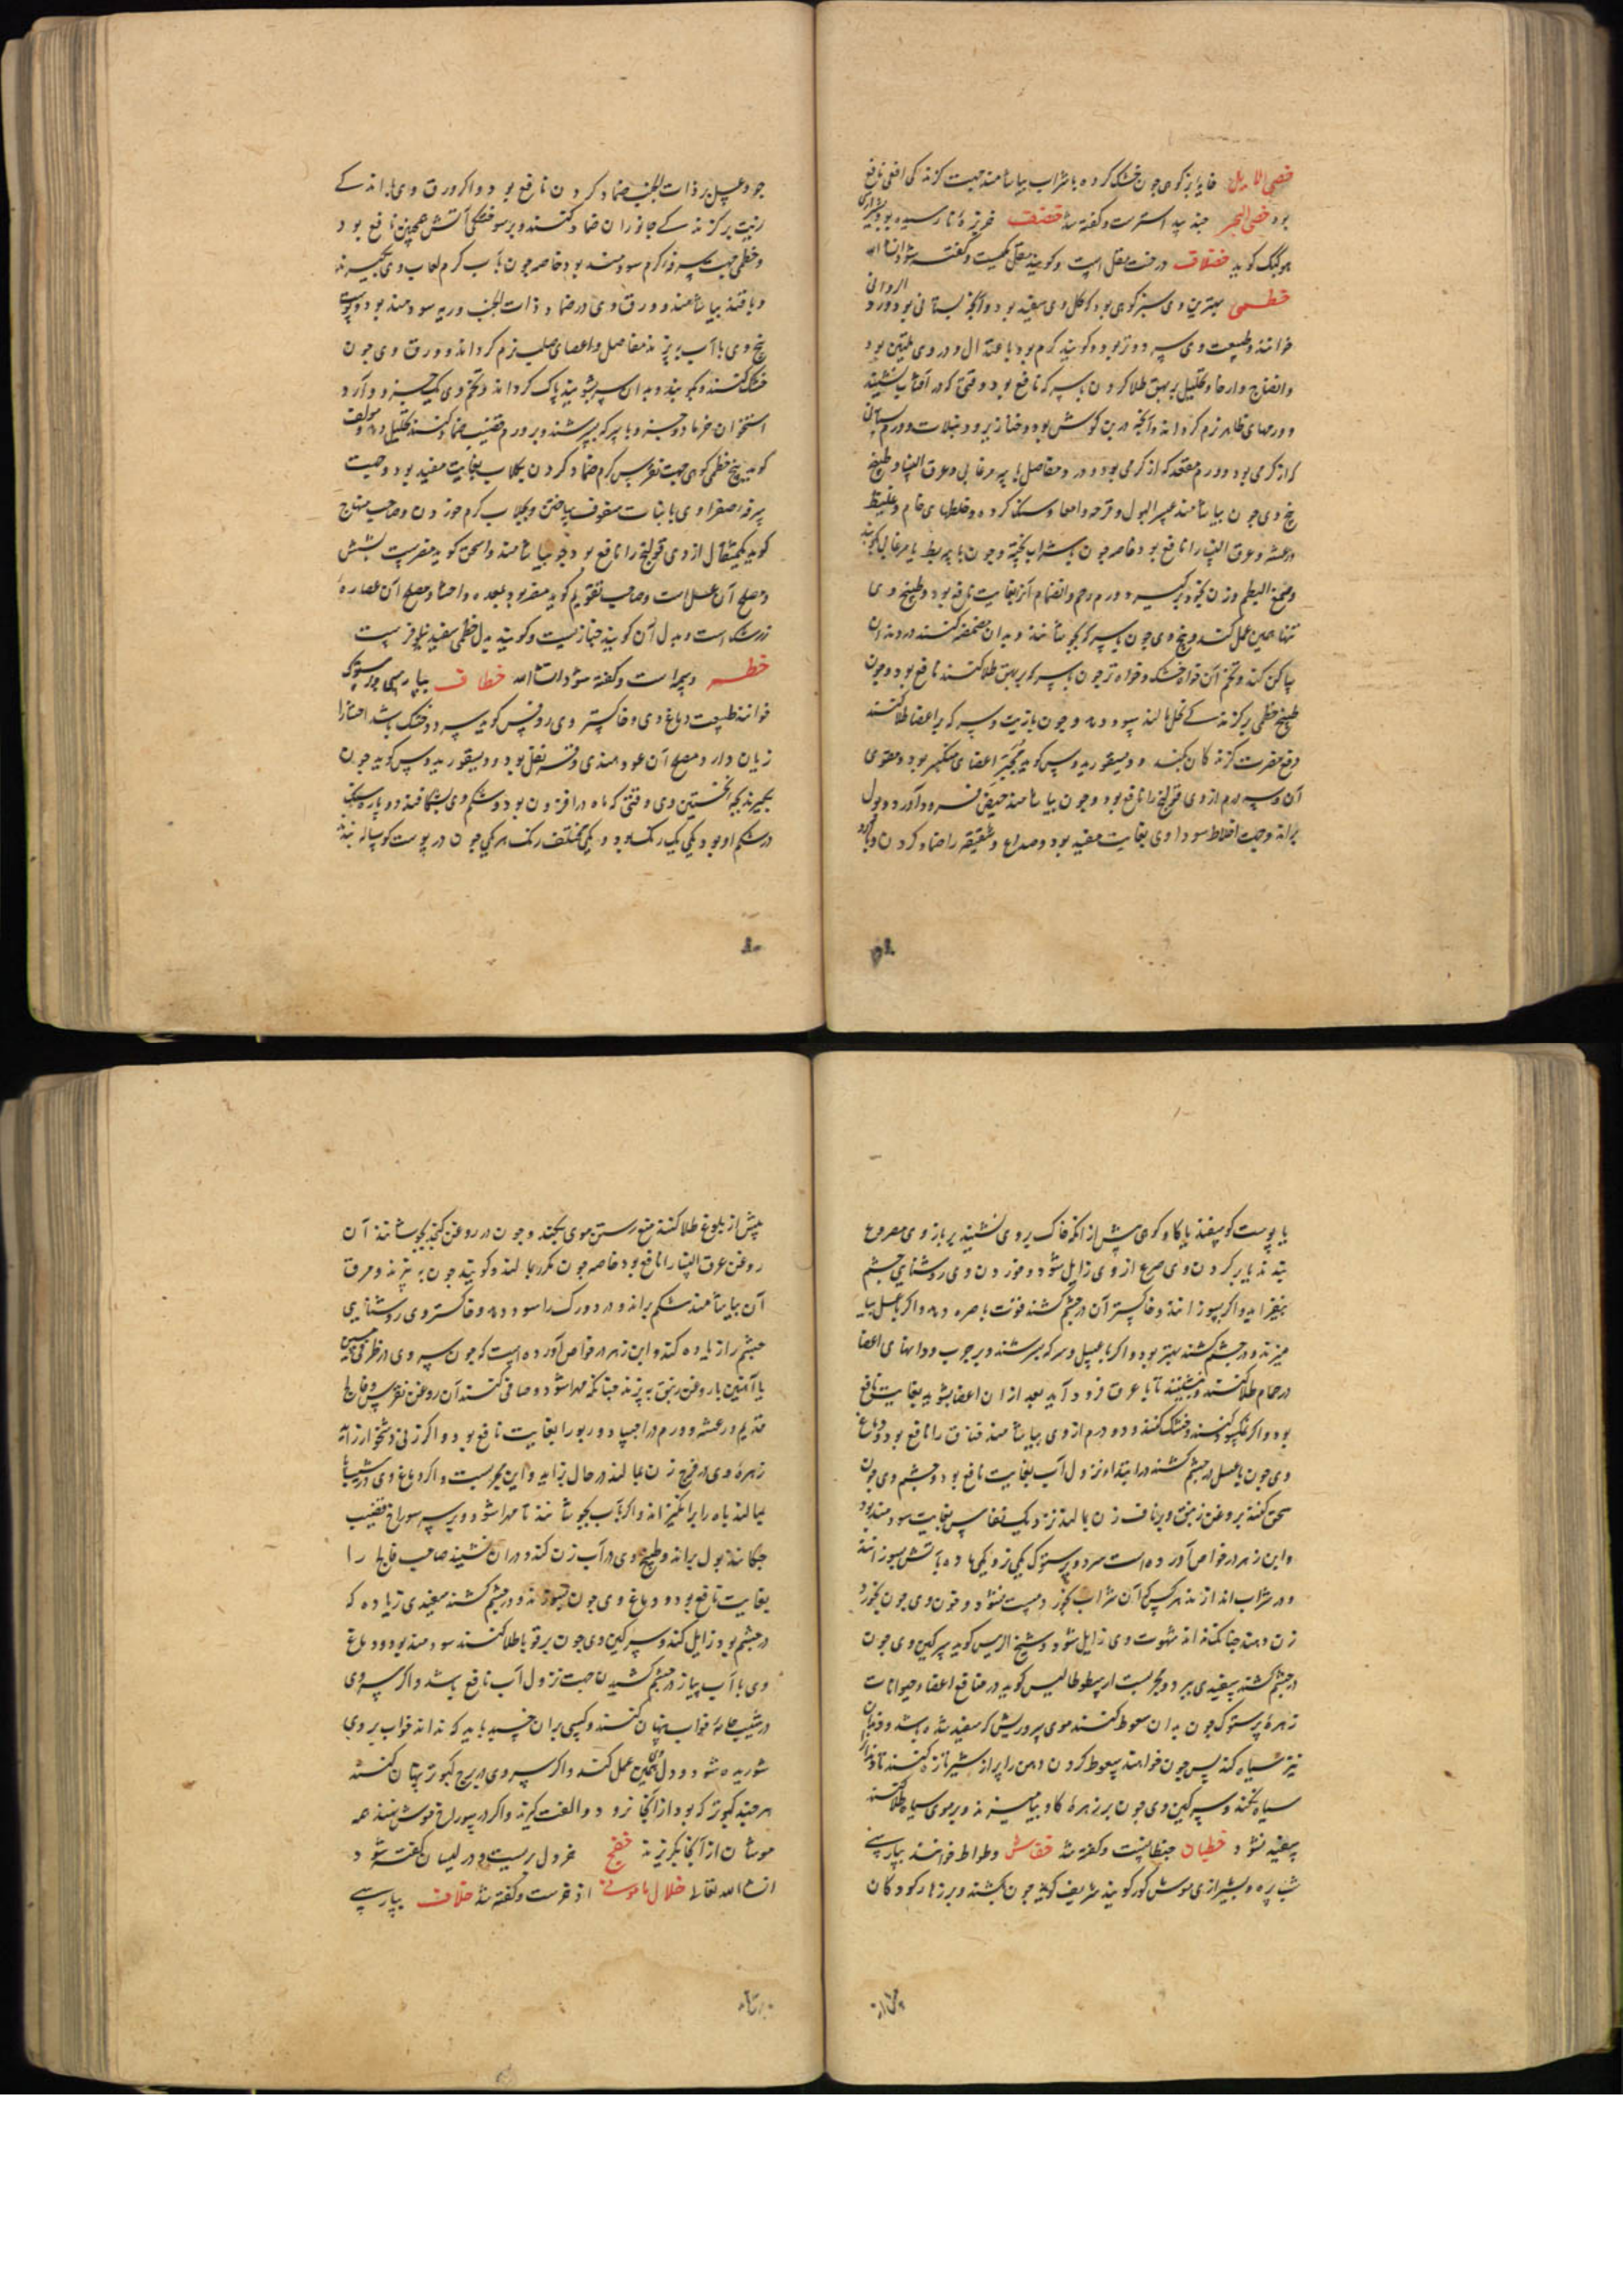 خصی الایل خایه بز کوهی چون خشک کرده با شراب بیاشامند جهت گزندگی افعی نافع
بود خصی البحر جند بیدسترست و گفته شد خضف خربزه نارسیده بود بشیرازی
خضلاف درخت مقل است و گویند مقل مکیست و گفته شود انشاالله
خطمی بهترین وی سبز کوهی بود و گل وی سفید بود و آنچه بستانی بود ورد الزوانی
خوانند و طبیعت وی سرد و تر بود و گویند گرم بود باعتدال و در وی تلیین بود
و انضاج و ارخا و تحلیل بر بهق طلا کردن با سرکه نافع بود وقتی که در آفتاب نشیند
و ورمهای ظاهر نرم گرداند و آنچه در بن گوش بود و خنازیر و دبیلات و ورم پستان
که از گرمی بود و ورم مقعد که از گرمی بود و درد مفاصل با پیه مرغابی و عرق النسا و طبیخ
بیخ وی چون بیاشامند عسر البول و قرحه امعا و سنگ گرده و خلطهای خام و غلیظ
و رعشه و عرق النسا را نافع بود خاصه چون با شراب پخته و چون با پیه بط یا مرغابی بکوبند
و صمغ البطم وزن کنند و برگیرند ورم رحم و انضمام آنرا بغایت نافع بود و طبیخ وی
تنها همین عمل کند و بیخ وی چون با سرکه بجوشانند و بدان مضمضه کنند درد دندان
ساکن کند و تخم آن خواه خشک و خواه تر چون با سرکه بر بهق طلا کنند نافع بود و چون
طبیخ خطمی بر گزندگی نحل مالند سود دهد و چون با زیت و سرکه بر اعضا طلا کنند
دفع مضرت گزندگان بکند و دیسقوریدوس گوید تجبیر اعضای منکسر بود و مقوی
آن و سه درم از وی قولنج را نافع بود و چون بیاشامند حیض فرود آورد و بول
براند و جهت اخلاط سوداوی بغایت مفید بود و صداع و شقیقه را ضماد کردن و با آرد
جو و عسل بر ذات الجنب ضماد کردن نافع بود و اگر ورق وی با اندکی
زیت بر گزندگی جانوران ضماد کنند و بر سوختگی آتش همچنین نافع بود
و خطمی جهت سرفه گرم سودمند بود خاصه چون بآب گرم لعاب وی بگیرند
و با قند بیاشامند و ورق وی در ضماد ذات الجنب و ریه سودمند بود و پوست
بیخ وی با آب بپزند مفاصل و اعضای صلب نرم گرداند و ورق وی چون
خشک کنند و بکوبند و بدان سر بشویند پاک گرداند و تخم وی یک جزو و آرد
استخوان خرما دو جزو و با سرکه بسرشند و بر ورم قضیب ضماد کنند تحلیل دهد و مولف
گوید بیخ خطمی کوهی جهت نقرس گرم ضماد کردن بگلاب بغایت مفید بود و جهت
سرفه صفراوی با نبات سفوف ساختن و بگلاب گرم خوردن و صاحب منهاج
گوید یکمثقال از وی قولنج را نافع بود چو بیاشامند و اسحق گوید مضرست بشش
و مصلح آن عسل است و صاحب تقویم گوید مضر بود بمعده و احشا و مصلح آن عصاره
زرشک است و بدل آن گویند خبازیست و گویند بدل خطمی سفید نیلوفرست
خطر وسمه است و گفته شود انشاالله خطاف بپارسی پرستوک
خوانند طبیعت دماغ وی و خاکستر وی روفس گوید سرد و خشک باشد احشا را
زیان دارد و مصلح آن عود هندی و قرنفل بود و دیسقوریدوس گوید چون
بگیرند بچه نخستین وی وقتی که ماه در افزون بود و شکم وی بشکافند دو پاره سنگ
در شکم او بود یکی یک رنگ بود و یکی مختلف رنگ هر یکی چون در پوست گوساله بندند
یا پوست گوسفند یا گاو کوهی پیش از آنکه خاک بر وی نشیند بر بازوی مصروع
بندند یا بر گردن وی صرع از وی زایل شود و خوردن وی روشنایی چشم
بیفزاید و اگر بسوزانند و خاکستر آن در چشم کشند قوت باصره دهد و اگر با عسل بیا
میزند و در چشم کشند بهتر بود و اگر با عسل و سرکه بسرشند و بر جرب و دوابهای اعضا
در حمام طلا کنند و بنشینند تا با عرق فرود آید بعد از آن اعضا بشویند بغایت نافع
بود و اگر نمکسود کنند و خشک کنند و دو درم از وی بیاشامند خناق را نافع بود و دماغ
وی چون با عسل در چشم کشند در ابتداء نزول آب بغایت نافع بود و چشم وی چون
سحق کنند بروغن زنبق و بر ناف زن بمالند نزدیک نفاس بغایت سودمند بود
و ابن زهر در خواص آورده است سر دو پرستوک یکی نر و یکی ماده بآتش بسوزانند
و در شراب اندازند هر کس که آن شراب بخورد مست نشود و خون وی چون بخورد
زن دهند چنانکه نداند شهوت وی زایل شود و شیخ الرئیس گوید سرگین وی چون
در چشم کشند سفیدی ببرد و مجربست ارسطوطالیس گوید در منافع اعضاء حیوانات
زهره پرستوک چون بدان سعوط کنند موی سر و ریش که سفید شده باشد و دندان
نیز سیاه کند پس چون خواهند سعوط کردن دهن را پر از شیر تازه کنند تا دندان
سیاه نکند و سرگین وی چون بر زهره گاو بیامیزند و بر موی سیاه طلا کنند
سفید نشود خطبان حنظلست و گفته شد خفاش وطواط خوانند بپارسی
شب پره و بشیرازی موش کور گویند شریف گوید چون بکشند و بر زهار کودکان
پیش از بلوغ طلا کنند منع رستن موی بکند و چون در روغن کنجد بجوشانند آن
روغن عرق النسا را نافع بود خاصه چون مکرر بمالند و گویند چون بپزند و مرق
آن بیاشامند شکم براند و درد ورک را سود دهد و خاکستر وی روشنایی
چشم را زیاده کند و ابن زهر در خواص آورده است که چون سر وی در ظرفی مسین
یا آهنین با روغن زنبق بپزند چنانکه مهرا شود و صافی کنند آن روغن نقرس و فالج
قدیم و رعشه و ورم در اجساد و ربو را بغایت نافع بود و اگر زنی دشخوار زاید
زهره وی در فرج زن بمالند در حال بزاید و این مجربست و اگر دماغ وی در شیب پا
بمالند باه را برانگیزاند و اگر بآب بجوشانند تا مهرا شود و بر سر سوراخ قضیب
چکانند بول براند و طبیخ وی در آبزن کنند و در آن نشیند صاحب فالج را
بغایت نافع بود و دماغ وی چون بسوزند و در چشم کشند سفیدی زیاده که
در چشم بود زایل کند و سرگین وی چون بر قوبا طلا کنند سودمند بود و دماغ
وی با آب پیاز در چشم کشیدن جهت نزول آب نافع باشد و اگر سر وی
در شیب جامه خواب پنهان کنند و کسی بران خسبد باید که نداند خواب بر وی
شوریده شود و دل وی همین عمل کند و اگر سر وی در برج کبوتر پنهان کنند
هر چند کبوتر که بود از آنجا نرود و الفت گیرند و اگر در سوراخ موش نهند همه
موشان از آنجا بگریزند خفج خردل بریست و در لبسان گفته شود
انشاالله تعالی خلال مامونی اذخرست و گفته شد خلاف بپارسی